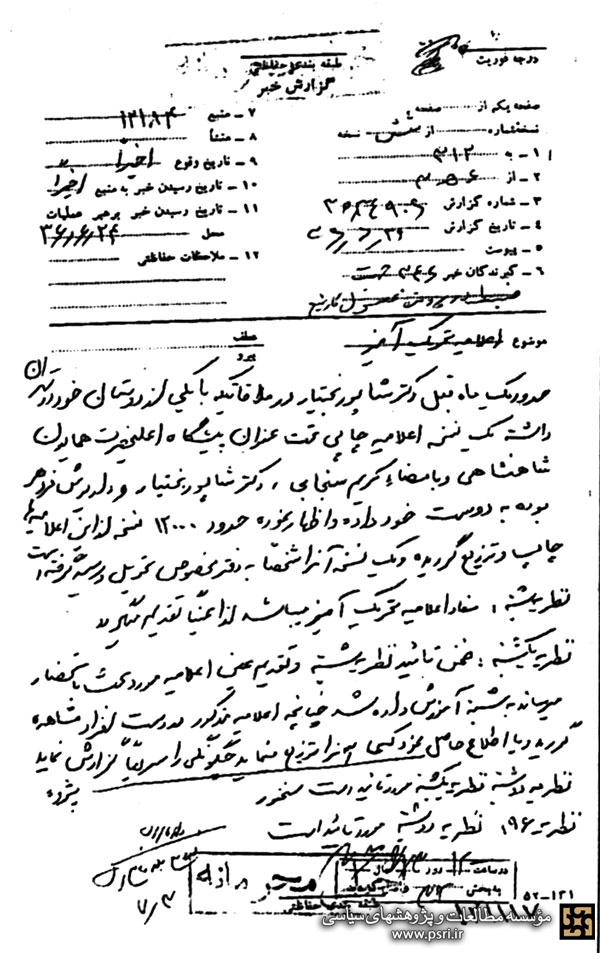 طبقه بندی حفاظتی
گزارش خبر
درجه فوریت
صفحه یکم از صفحه
نسخه شماره از شش نسخه
۱ - به ۳۱۲
۲ - از
۳ - شماره گزارش
۴ - تاریخ گزارش
۵ - پیوست
۶ - گیرندگان خبر
۷ - منبع ۱۲۱۸۴
۸ - منشأ
۹ - تاریخ وقوع اخیرا
۱۰ - تاریخ رسیدن خبر به منبع اخیرا
۱۱ - تاریخ رسیدن خبر برهبر عملیات
محل ۳۶/۶/۲۴
۱۲ - ملاحظات حفاظتی
موضوع اعلامیه تحریک آمیز
عطف
پیرو
حدود یک ماه قبل دکتر شاپور بختیار در ملاقاتیکه با یکی از دوستان خود در تهران
داشته یک نسخه اعلامیه چاپی تحت عنوان پیشگاه اعلیحضرت همایون
شاهنشاهی و بامضاء کریم سنجابی ، دکتر شاپور بختیار و داریوش فروهر
بوده به دوست خود داده و اظهار نموده حدود ۱۲۰۰۰ نسخه از این اعلامیه ها
چاپ و توزیع گردیده و یک نسخه آنرا شخصا به دفتر مخصوص تحویل و رسید گرفته است
نظریه شنبه : مفاد اعلامیه تحریک آمیز میباشد لذا عیناً تقدیم میگردد
نظریه یکشنبه : ضمن تائید نظریه شنبه و تقدیم عین اعلامیه مورد بحث باستحضار
میرساند به شنبه آموزش داده شد چنانچه اعلامیه مذکور در دست افراد مشاهده
گردید و یا اطلاع حاصل نمود کسی آنرا توزیع مینماید چگونگی را سریعاً گزارش نماید
نظریه دوشنبه نظریه یکشنبه مورد تائید است
نظریه سه شنبه نظریه دوشنبه مورد تائید است
در ساعت روز
به بخش
طبقه بندی حفاظتی
۵۲-۱۳۱
۷/۳
مؤسسه مطالعات و پژوهشهای سیاسی
www.psri.ir